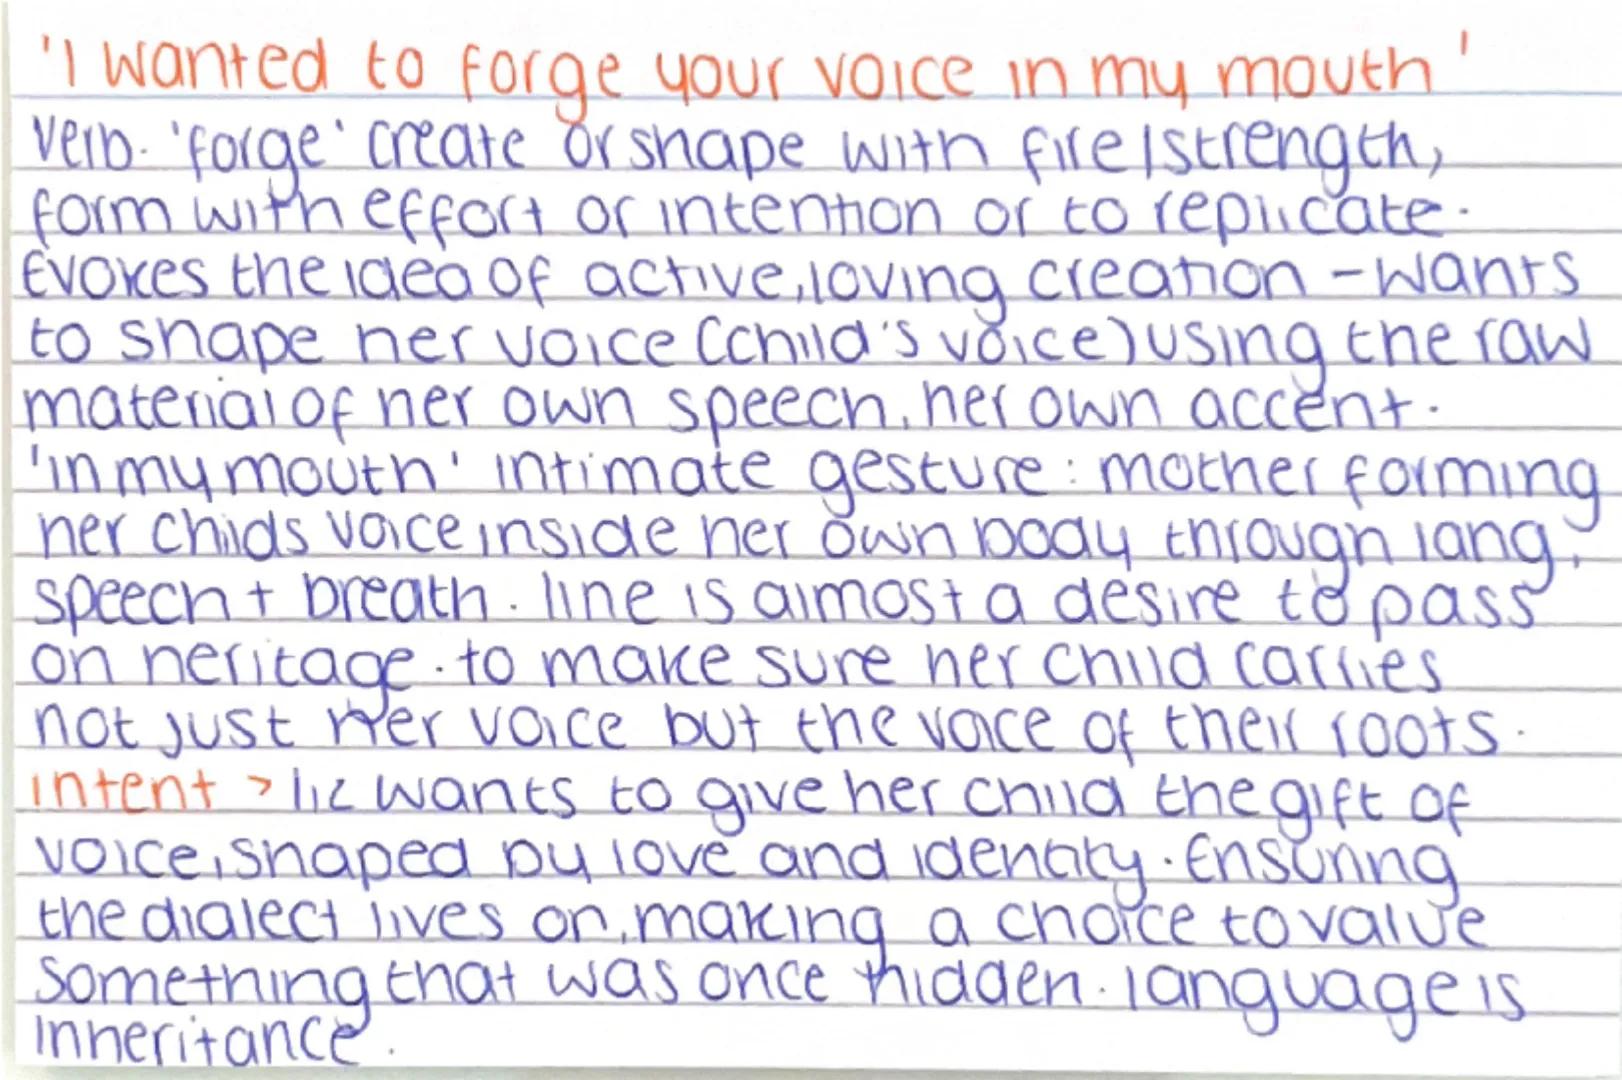 'I wanted to forge your voice in my mouth'
Verb. 'forge' create or shape with fire/strength,
form with effort or intention or to replicate.
Evokes the idea of active, loving creation - wants
to shape her voice (child's voice) using the raw
material of her own speech, her own accent.
'in my mouth' intimate gesture: mother forming
her chids voice inside her own body through lang,
speech + breath. line is almost a desire to pass
on heritage. to make sure her child carries
not just her voice but the voice of their roots.
intent > liz wants to give her child the gift of
voice, shaped by love and identity. Ensuring
the dialect lives on, making a choice to value
something that was once hidden. language is
inheritance.